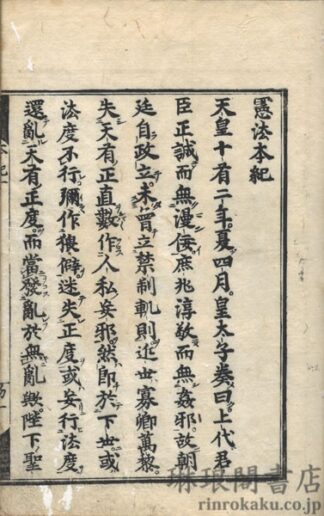 憲法本紀
天皇十有二年。夏四月。皇太子奏曰。上代君
臣正誠而無漫佞庶兆淳敬而無姦邪。故朝
廷自政立。未曾立禁制軌則近世寡卿萬黎
失天有正直數作人私妄邪。然即於下世或
法度不行彌作複僻迷失正度。或妄行法度
還亂天有正度。而當發亂於無亂與陛下聖
琳琅閣書店
rinrokaku.co.jp